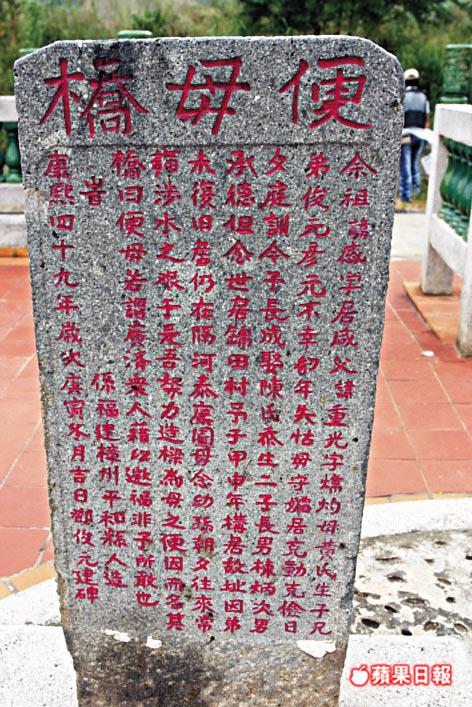 便母橋
余祖諱感居咸父諱重光字灼母黃氏生予兄
弟俊元彥元不幸年失怙母守孀居克勤克儉日
夕庭訓今予長成娶陳氏亦生二子長男棟炳次男
承德但念世居錦田村予于甲申年構居故址因弟
未復旧居仍在隔河泰康圍母念幼孫朝夕往來常
涉水之艱于是吾努力造樑為母之便因而名其
橋曰便母若謂廣濟衆人藉以邀福非予所敢也
係福建樟州平和縣人造
康熙四十九年歲次庚寅冬月吉日鄧俊元建碑
蘋果日報